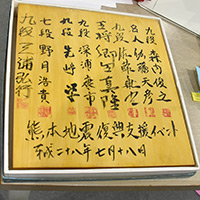 九段 森内俊之
名人 佐藤天彦
九段 佐藤康光
王将 郷田真隆
九段 深浦康市
九段 先崎学
七段 野月浩貴
九段 三浦弘行
熊本地震復興支援イベント
平成二十八年七月十八日